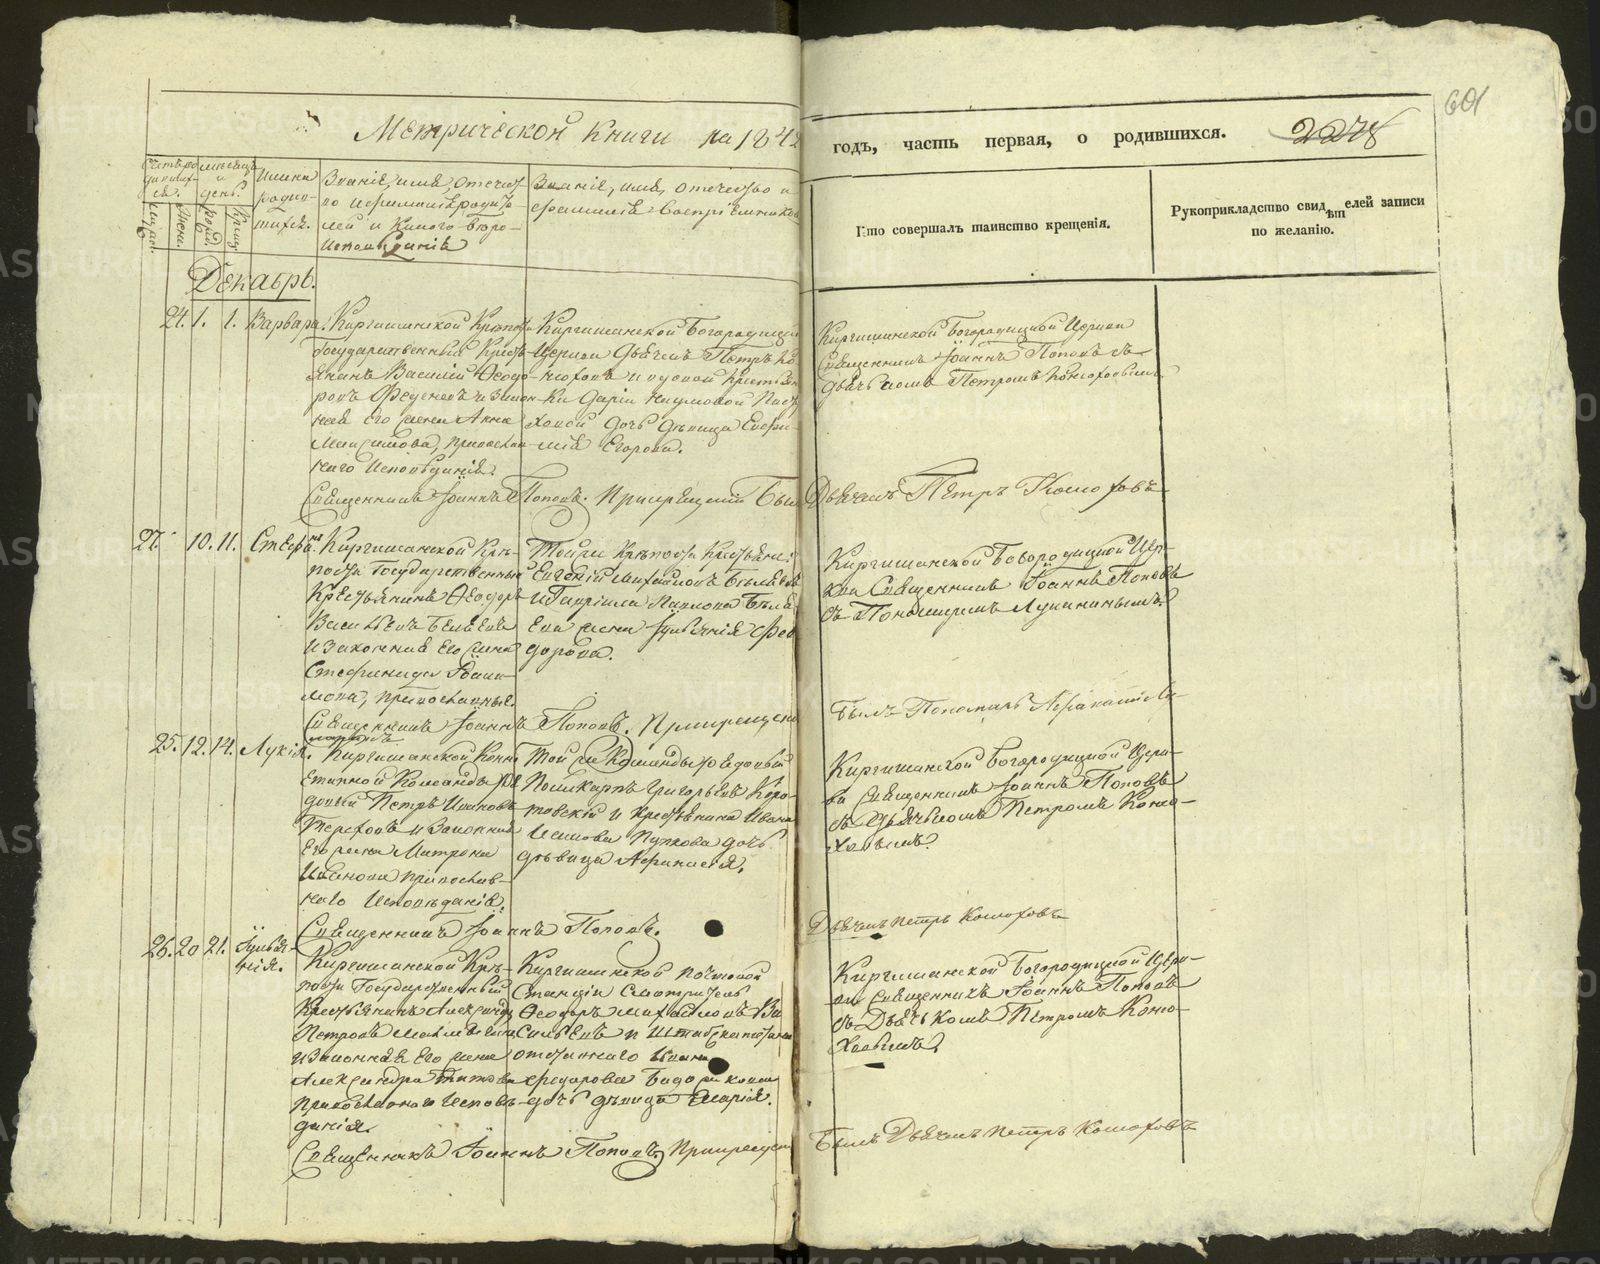 Метрической книги на 1842
годъ, часть первая, о родившихся.
2278
601
Счетъ родившихся.
мѣсяцъ и день.
Имена родившихся.
Званіе, имя, отечество и фамилія родителей и какого вѣроисповѣданія
Званіе, имя, отечество и фамилія воспріемниковъ
Кто совершалъ таинство крещенія.
Рукоприкладство свидѣтелей записи
по желанію.
Декабрь.
24. 1. 1. Варвара.
Киргишанской Крѣпости
Государственный Кресть-
янинъ Василій Ѳеодо-
ровъ и закон-
ная его жена Анна
Максимова, православ-
наго исповѣданія.
Киргишанской Богородицкой
Церкви Дьячекъ Петръ Ко-
нюховъ и
Дарьи Наумовой
дочь дѣвица Евфи-
мія Егорова.
Киргишанской Богородицкой Церкви
Священникъ Іоаннъ Поповъ съ
дьячькомъ Петромъ Конюховымъ
Священникъ Іоаннъ Поповъ. При крещеніи Былъ Дьячекъ Петръ Конюховъ
27. 10. 11. Стефанъ
Киргишанской Крѣ-
пости Государственный
Крестьянинъ Ѳеодоръ
Васильевъ Бѣляевъ
и законная его жена
Стефанида Іоаки-
мова, православные.
Той же Крѣпости Крестьяне:
Евгеній Михайловъ Бѣляевъ
и Гавріила Павлова Бѣля-
ева жена Іуліянія Фео-
дорова.
Киргишанской Богородицкой Цер-
кви Священникъ Іоаннъ Поповъ
съ Пономаремъ Лукинымъ.
Священникъ Іоаннъ Поповъ. При крещеніи
былъ Пономарь Аѳанасій Лу-
25. 12. 14. Лукія.
Киргишанской Конно
Етапной Команды ря-
довый Петръ Ивановъ
Терехов и законная
его жена Матрона
Иванова православ-
наго исповѣданія.
Той же Команды рядовый
Поликарпъ Григорьевъ Коро-
товскій и крестьянина Ивана
дочь
дѣвица Аѳанасія.
Киргишанской Богородицкой Церк-
ви Священникъ Іоаннъ Поповъ
съ дьячькомъ Петромъ Коню-
ховымъ.
Священникъ Іоаннъ Поповъ.
Дьячекъ Петръ Конюховъ
26. 20 21. Іуліа-
нія.
Киргишанской Крѣ-
пости Государственный
Крестьянинъ Александръ
Петровъ
и законная его жена
Александра Титова
православнаго исповѣ-
данія.
Киргишанской почтовой
Станціи Смотритель
Ѳеодоръ Михайловъ Ва-
сильевъ и Штабскапитана
отставнаго Ивана
Федорова
дочь дѣвица Марія.
Киргишанской Богородицкой Церк-
ви Священникъ Іоаннъ Поповъ
съ Дьячькомъ Петромъ Коню-
ховымъ.
Священникъ Іоаннъ Поповъ. При крещеніи
Былъ Дьячекъ Петръ Конюховъ
METRIKI.GASO-URAL.RU